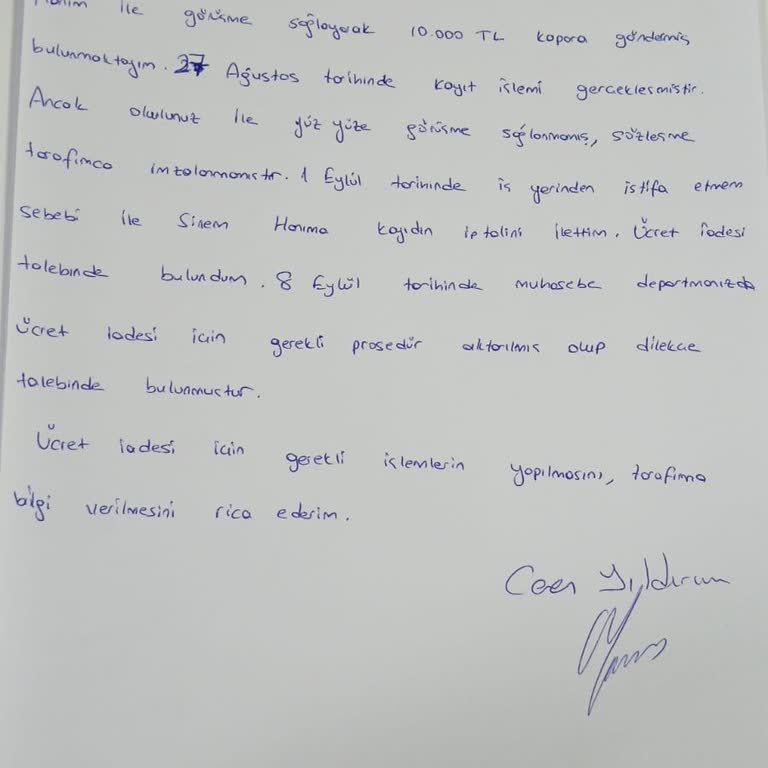 Hanım ile görüşme sağlayarak 10.000 TL kapora göndermiş
bulunmaktayım. 27 Ağustos tarihinde kayıt işlemi gerçekleşmiştir.
Ancak okulunuz ile yüz yüze görüşme sağlanmamış, sözleşme
tarafımca imzalanmamıştır. 1 Eylül tarihinde iş yerinden istifa etmem
sebebi ile Sinem Hanıma kaydın iptalini ilettim. Ücret iadesi
talebinde bulundum. 8 Eylül tarihinde muhasebe departmanızda
Ücret iadesi için gerekli prosedür aktarılmış olup dilekçe
talebinde bulunmuştur.
Ücret iadesi için gerekli işlemlerin yapılmasını, tarafıma
bilgi verilmesini rica ederim.
Yıldırım